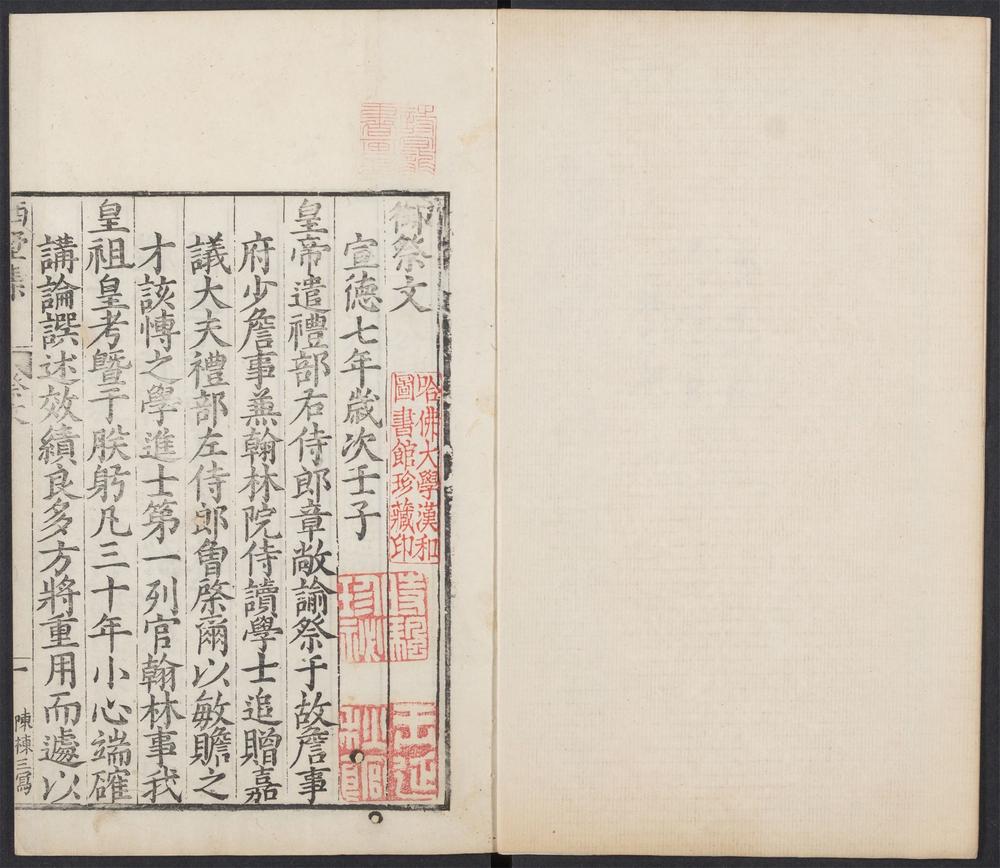 御祭文
宣德七年歲次壬子
皇帝遣禮部右侍郎章敞諭祭于故詹事
府少詹事兼翰林院侍讀學士追贈嘉
議大夫禮部左侍郎曾棨爾以敏贍之
才該博之學進士第一列官翰林事我
皇祖皇考暨于朕躬凡三十年小心端確
講論譔述效績良多方將重用而遽以
西墅集
祭文
一
陳棟三寫
哈佛大學漢和
圖書館珍藏印